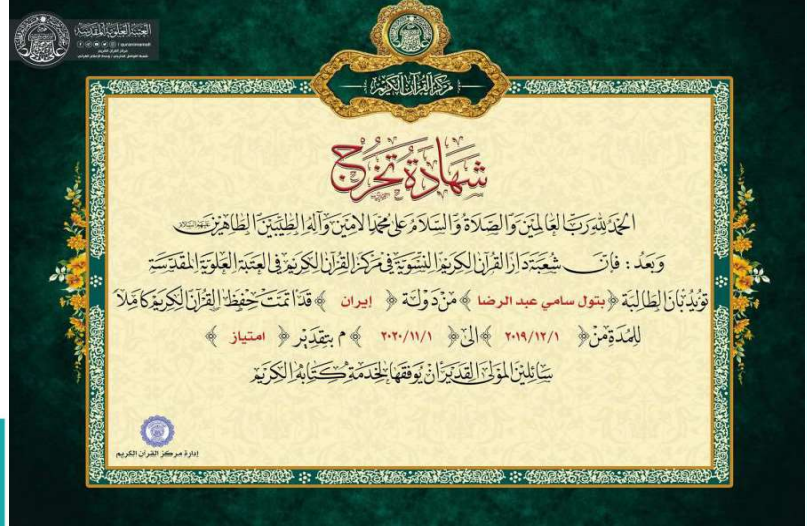 العتبة العلوية المقدسة
مركز القرآن الكريم
شهادة تخرج
الحمد لله رب العالمين والصلاة والسلام على محمد الامين وآله الطيبين الطاهرين
وبعد : فان شعبة دار القرآن الكريم النسوية في مركز القرآن الكريم في العتبة العلوية المقدسة
تؤيد بان الطالبة ﴿ بتول سامي عبد الرضا ﴾ من دولة ﴿ إيران ﴾ قد اتمت حفظ القرآن الكريم كاملا
للمدة من ﴿ ٢٠١٩/١٢/١ ﴾ الى ﴿ ٢٠٢٠/١١/١ ﴾ م بتقدير ﴿ امتياز ﴾
سائلين المولى القدير ان يوفقها لخدمة كتابه الكريم
إدارة مركز القرآن الكريم